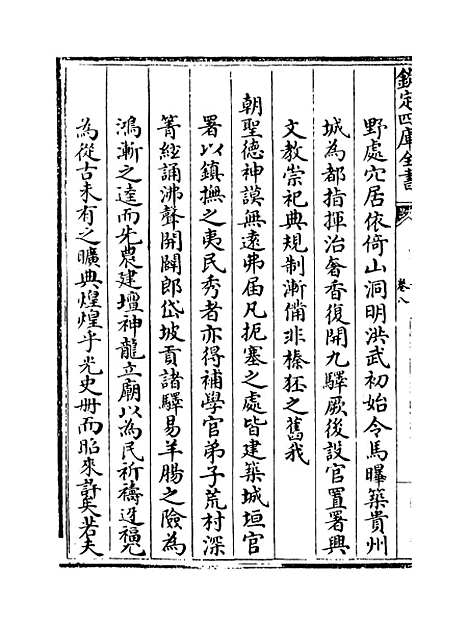 欽定四庫全書
卷八
野處穴居依倚山洞明洪武初始令馬曄築貴州
城為都指揮冶奢香復開九驛厥後設官置署興
文教崇祀典規制漸備非榛狉之舊我
朝聖德神謨無遠弗届凡扼塞之處皆建築城垣官
署以鎮撫之夷民秀者亦得補學官弟子荒村深
箐經誦沸聲開闢郎岱坡貢諸驛易羊腸之險為
鴻漸之逵而先農建壇神龍立廟以為民祈禱迓福尤
為從古未有之曠典煌煌乎光史册而昭來許矣若夫